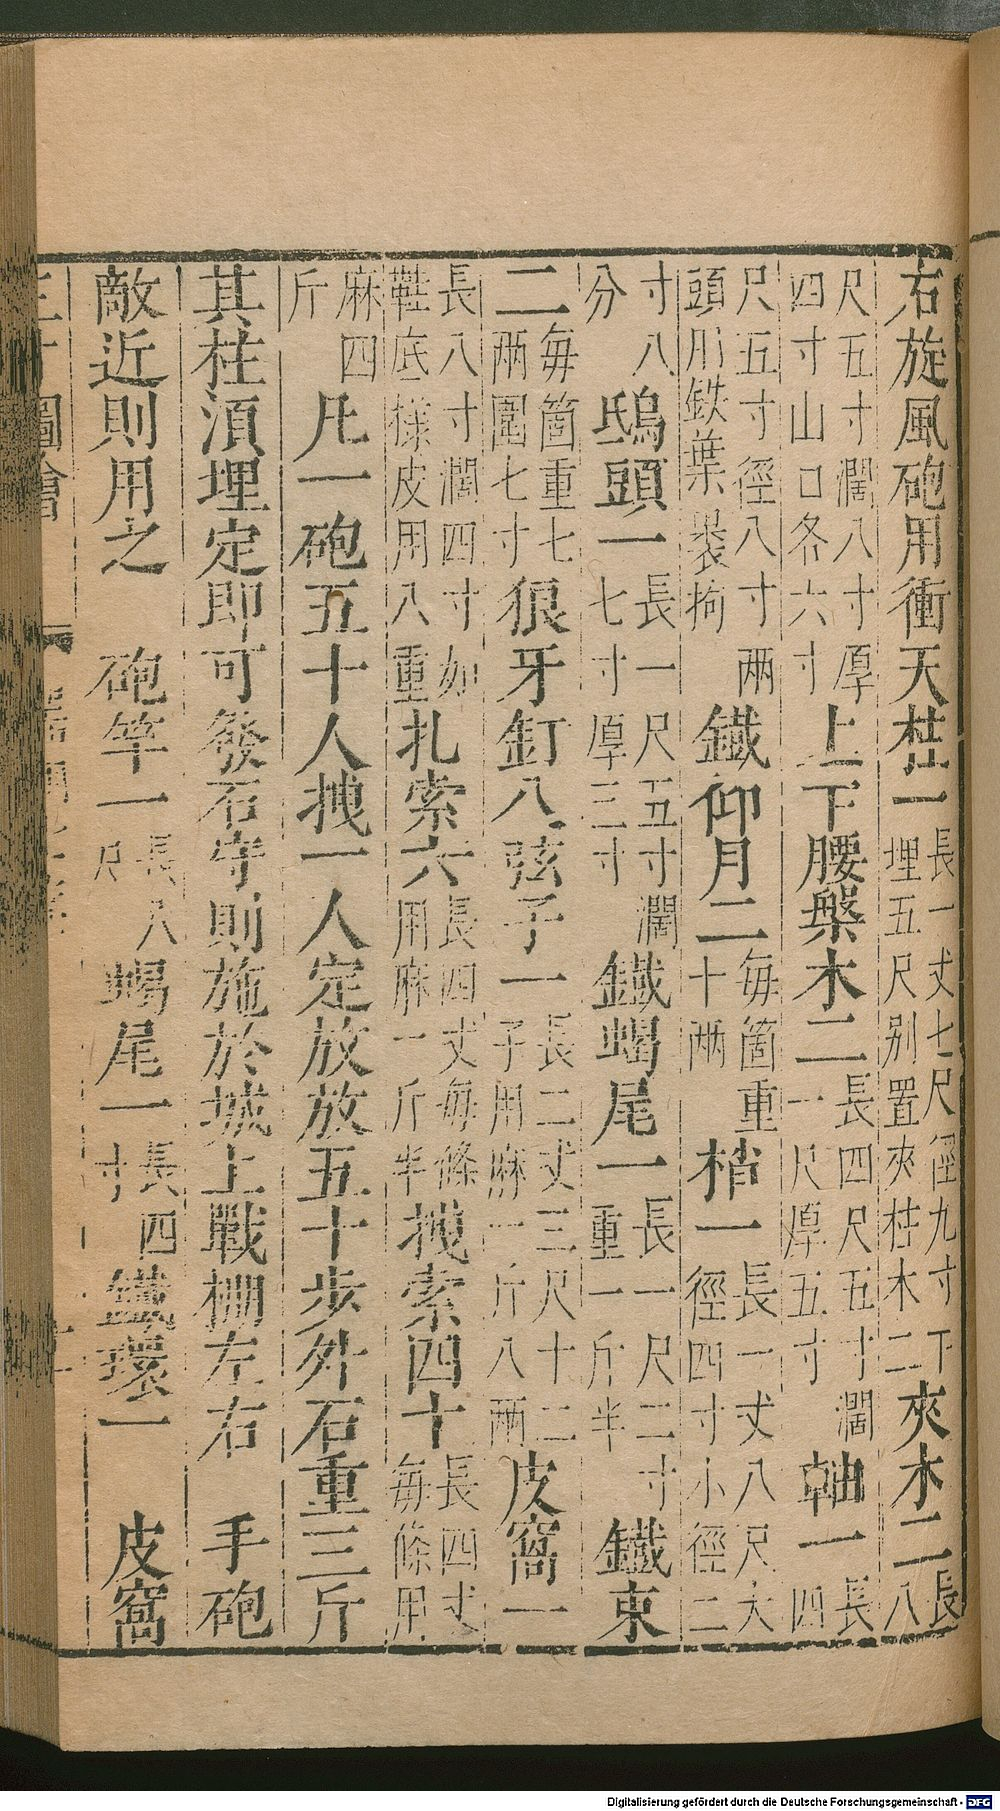 右旋風砲用衝天柱一長一丈七尺徑九寸下埋五尺别置夾柱木二夾木二長八
尺五寸濶八寸厚四寸山口各六寸上下腰槃木二長四尺五寸濶一尺厚五寸軸一長四
尺五寸徑八寸兩頭用鉄葉裝拘鐵仰月二每箇重十兩梢一長一丈八尺大徑四寸小徑二
寸八分鴟頭一長一尺五寸濶七寸厚三寸鐵蝎尾一長一尺二寸重一斤半鐵束
二每箇重七兩圍七寸狼牙釘八弦子一長二丈三尺十二子用麻一斤八兩皮窩一
長八寸濶四寸如鞋底樣皮用八重扎索六長四丈每條用麻一斤半拽索四十長四丈每條用
麻四斤凡一砲五十人拽一人定放放五十步外石重三斤
其柱湏埋定即可發石守則施於城上戰棚左右 手砲
敵近則用之 砲竿一長八尺蝎尾一長四寸鐵環一 皮窩
三才圖會
Digitalisierung gefördert durch die Deutsche Forschungsgemeinschaft - DFG